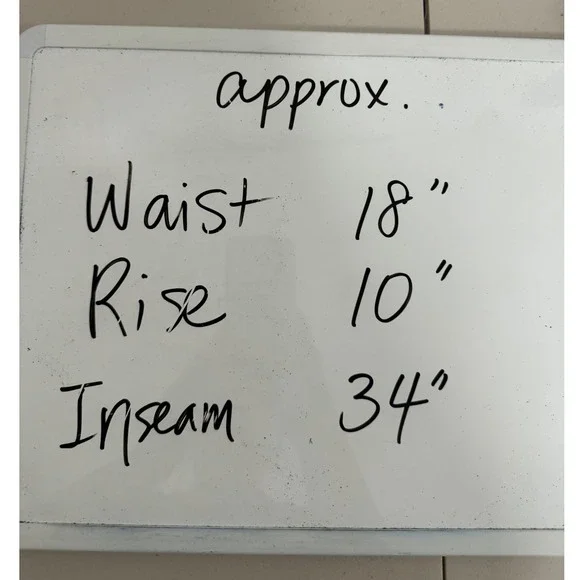 approx.
Waist 18"
Rise 10"
Inseam 34"